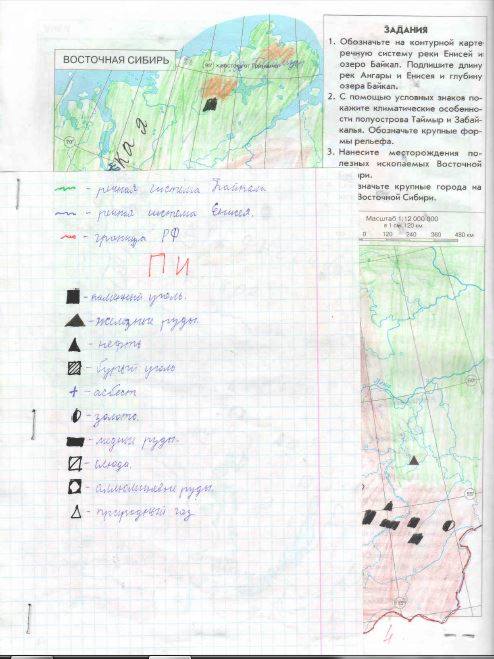 ВОСТОЧНАЯ СИБИРЬ
ЗАДАНИЯ
1. Обозначьте на контурной карте
речную систему реки Енисей и
озеро Байкал. Подпишите длину
рек Ангары и Енисея и глубину
озера Байкал.
2. С помощью условных знаков по-
кажите климатические особенно-
сти полуострова Таймыр и Забай-
калья. Обозначьте крупные фор-
мы рельефа.
3. Нанесите месторождения по-
лезных ископаемых Восточной
значьте крупные города на
Восточной Сибири.
Масштаб 1:12 000 000
в 1 см 120 км
0 120 240 360 480 км
кая
- речная система Байкала
- речная система Енисея.
- граница РФ
ПИ
- каменный уголь.
- железные руды.
- нефть
- бурый уголь
- асбест
- золото.
- медные руды.
- слюда.
- аллюминиевые руды.
- природный газ
4.